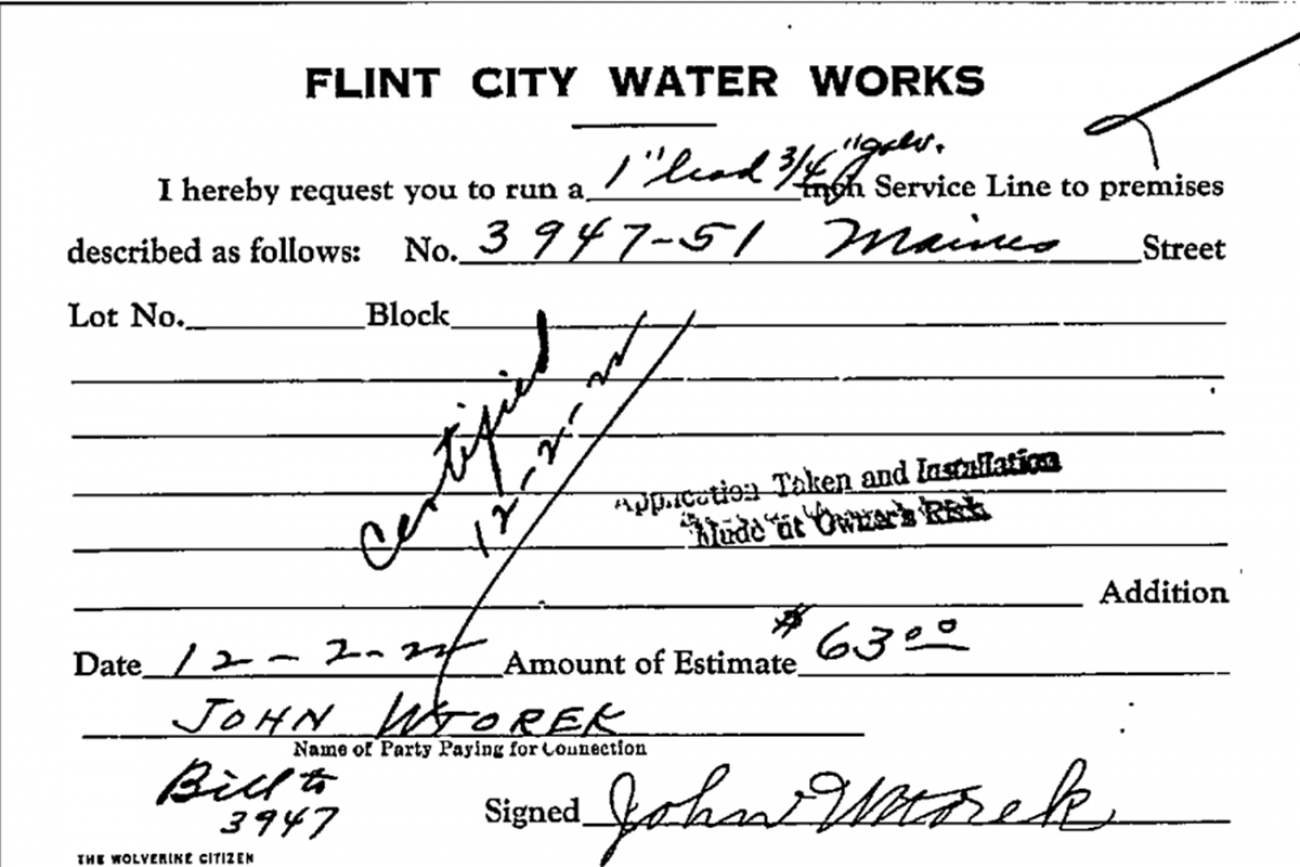 FLINT CITY WATER WORKS
I hereby request you to run a 1" lead 3/4" galv. inch Service Line to premises
described as follows: No. 3947-51 Maines Street
Lot No. Block
Certified
12-2-22
Application Taken and Installation
Made at Owner's Risk
Addition
Date 12-2-22 Amount of Estimate $63.00
JOHN WTOREK
Name of Party Paying for Connection
Bill to
3947
Signed John Wtorek
THE WOLVERINE CITIZEN